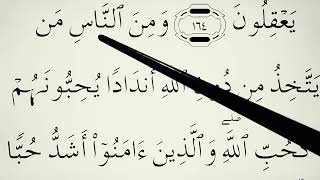 يَعْقِلُونَ ١٦٤ وَمِنَ ٱلنَّاسِ مَن
يَتَّخِذُ مِن دُونِ ٱللَّهِ أَندَادًا يُحِبُّونَهُمْ
كَحُبِّ ٱللَّهِ وَٱلَّذِينَ ءَامَنُوٓا۟ أَشَدُّ حُبًّا